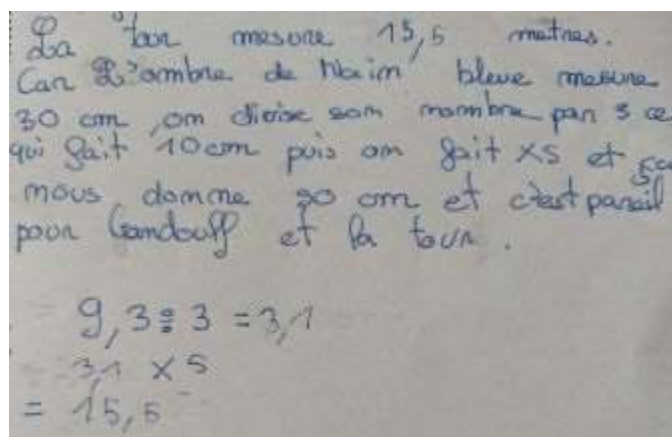 La tour mesure 15,5 metres.
Car L'ombre de Nain bleue mesure
30 cm, on divise son nombre par 3 ce
qui fait 10cm puis on fait x5 et ça
nous donne 50 cm et c'est pareil
pour Gandouff et la tour.
9,3 : 3 = 3,1
3,1 x 5
= 15,5